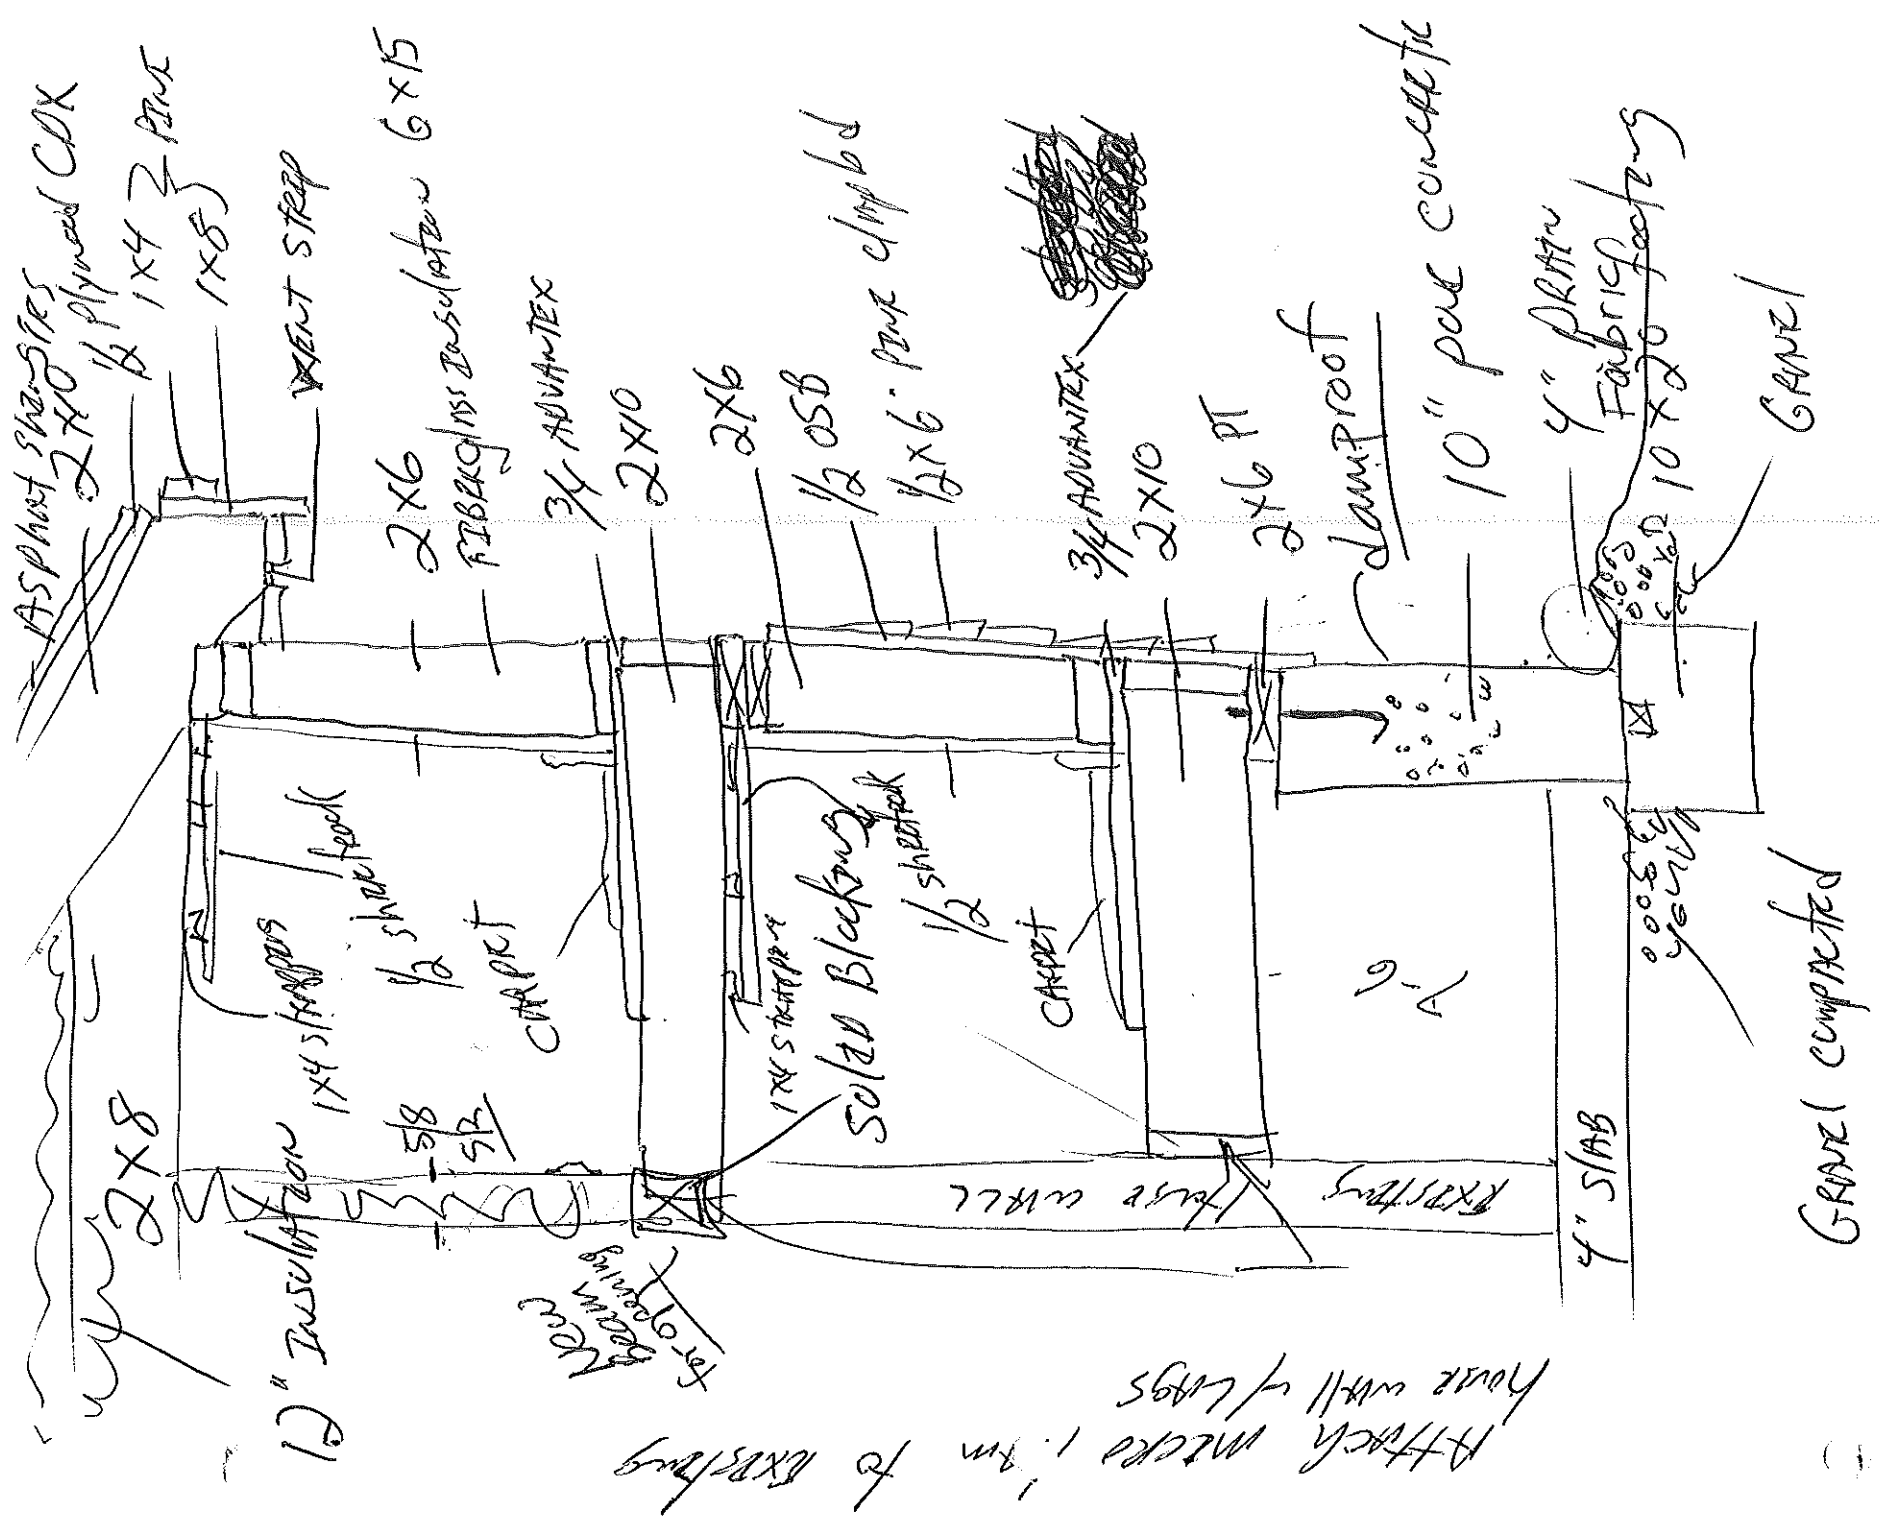 ASPHALT Shingles
2x10
1/2 Plywood CDX
1x4 } PINE
1x8
VENT STRIP
2x6
FIBERglass Insulation 6x15
3/4 ADVANTEX
2x10
2x6
1/2 OSB
1/2 x 6" PINE clapbd
3/4 ADVANTEX
2x10
2x6 PT
damproof
10" pour CONCRETE
4" DRAIN
Fabric
10 x 20 footing
GRAVEl
12" INSUlATION
2x8
1x4 strapping
1/2 sheetrock
CARPEt
5/8
SR
New
Beam
for opening
1x4 STRAPPING
SOlID BlockIng
1/2 sheetrock
CARPEt
EXISTING House WALL
4" SlAB
GRAVEl COMPACTEd
ATTACH MICRO l.am to EXISTING
house WAll w/ LAGS